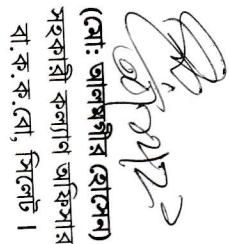 (মো: আলমগীর হোসেন)
সহকারী কল্যাণ অফিসার
বা.ক.ক.বো, সিলেট।